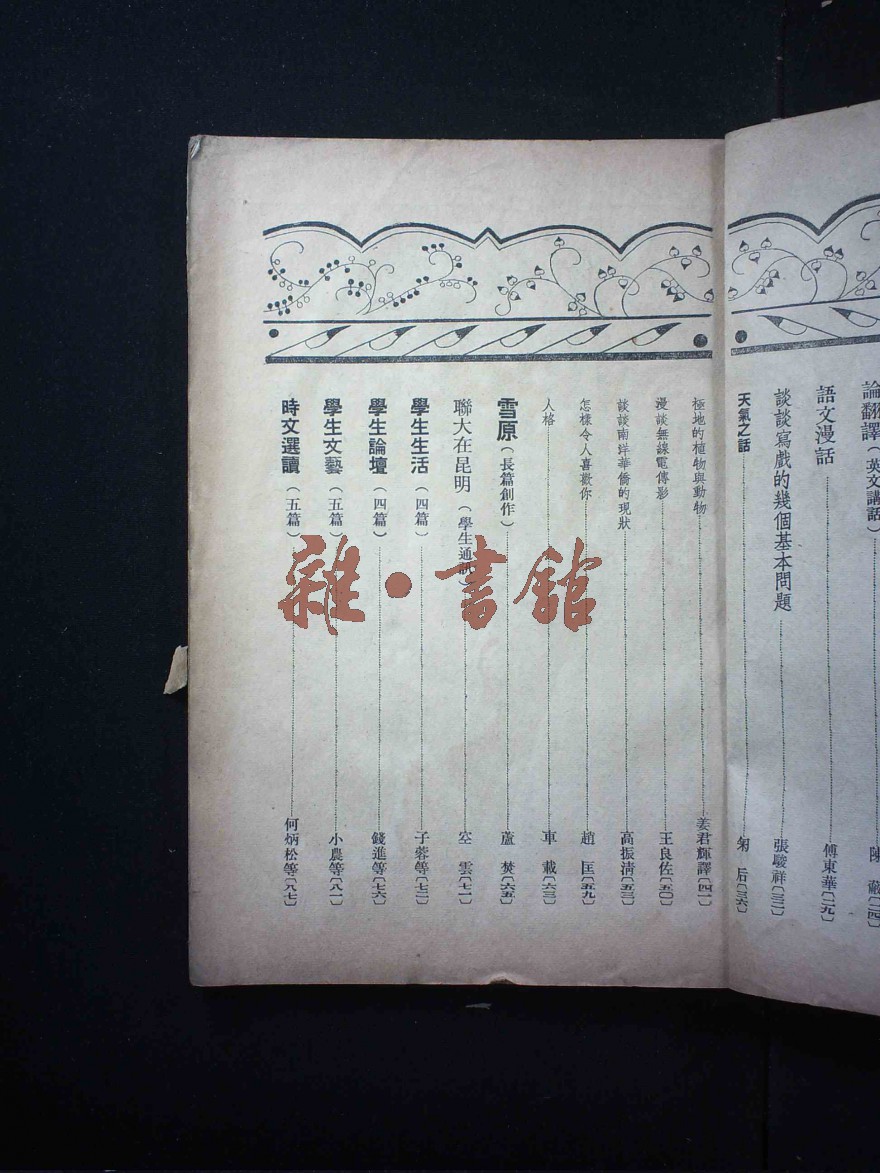 論翻譯(英文講話)陳
語文漫話 傅東華〔二九〕
談談寫戲的幾個基本問題 張駿祥〔三二〕
天氣之話 后〔三六〕
極地的植物與動物 姜君輝譯〔四一〕
漫談無線電傳影 王良佐〔五〇〕
談談南洋華僑的現狀 高振清〔五三〕
怎樣令人喜歡你 趙 匡〔五九〕
人格 車 載〔六三〕
雪原(長篇創作) 蘆 焚〔六五〕
聯大在昆明(學生通訊) 空 雲〔七一〕
學生生活(四篇) 子蓉等〔七二〕
學生論壇(四篇) 錢進等〔七六〕
學生文藝(五篇) 小農等〔八一〕
時文選讀(五篇) 何炳松等〔八七〕
雜·書館